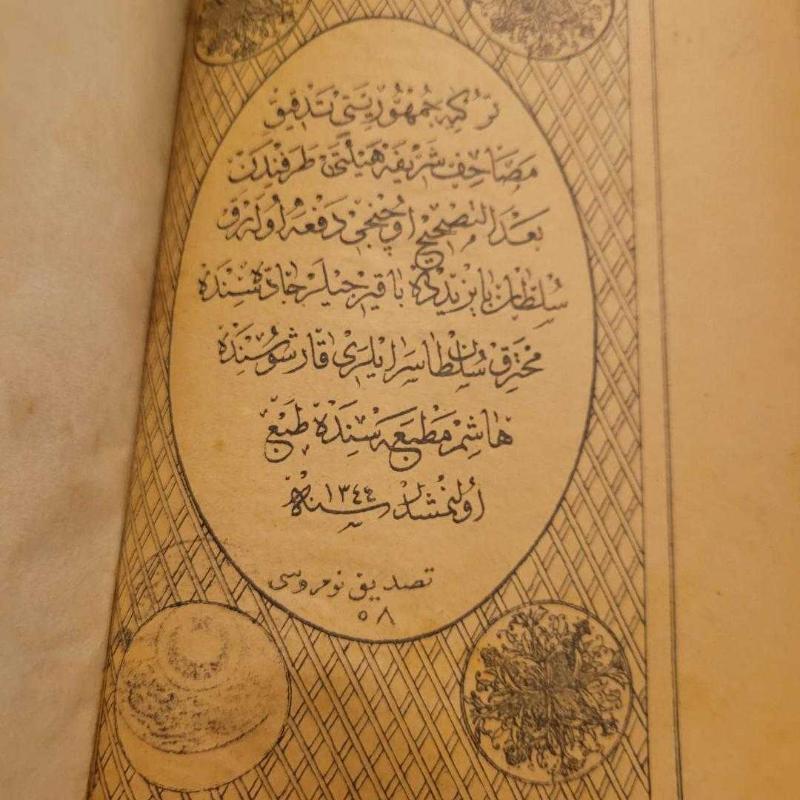 تركيه جمهوريتى تدقيق
مصاحف شريفه هيئتى طرفندن
بعد التصحيح اوچنجى دفعه اوله رق
سلطان بايزيدده باقيرجيلر جاده سنده
محترق سلطان سرايلرى قارشوسنده
هاشم مطبعه سنده طبع
اولنمشدر سنه ١٣٤٤
تصديق نومروسى
٥٨